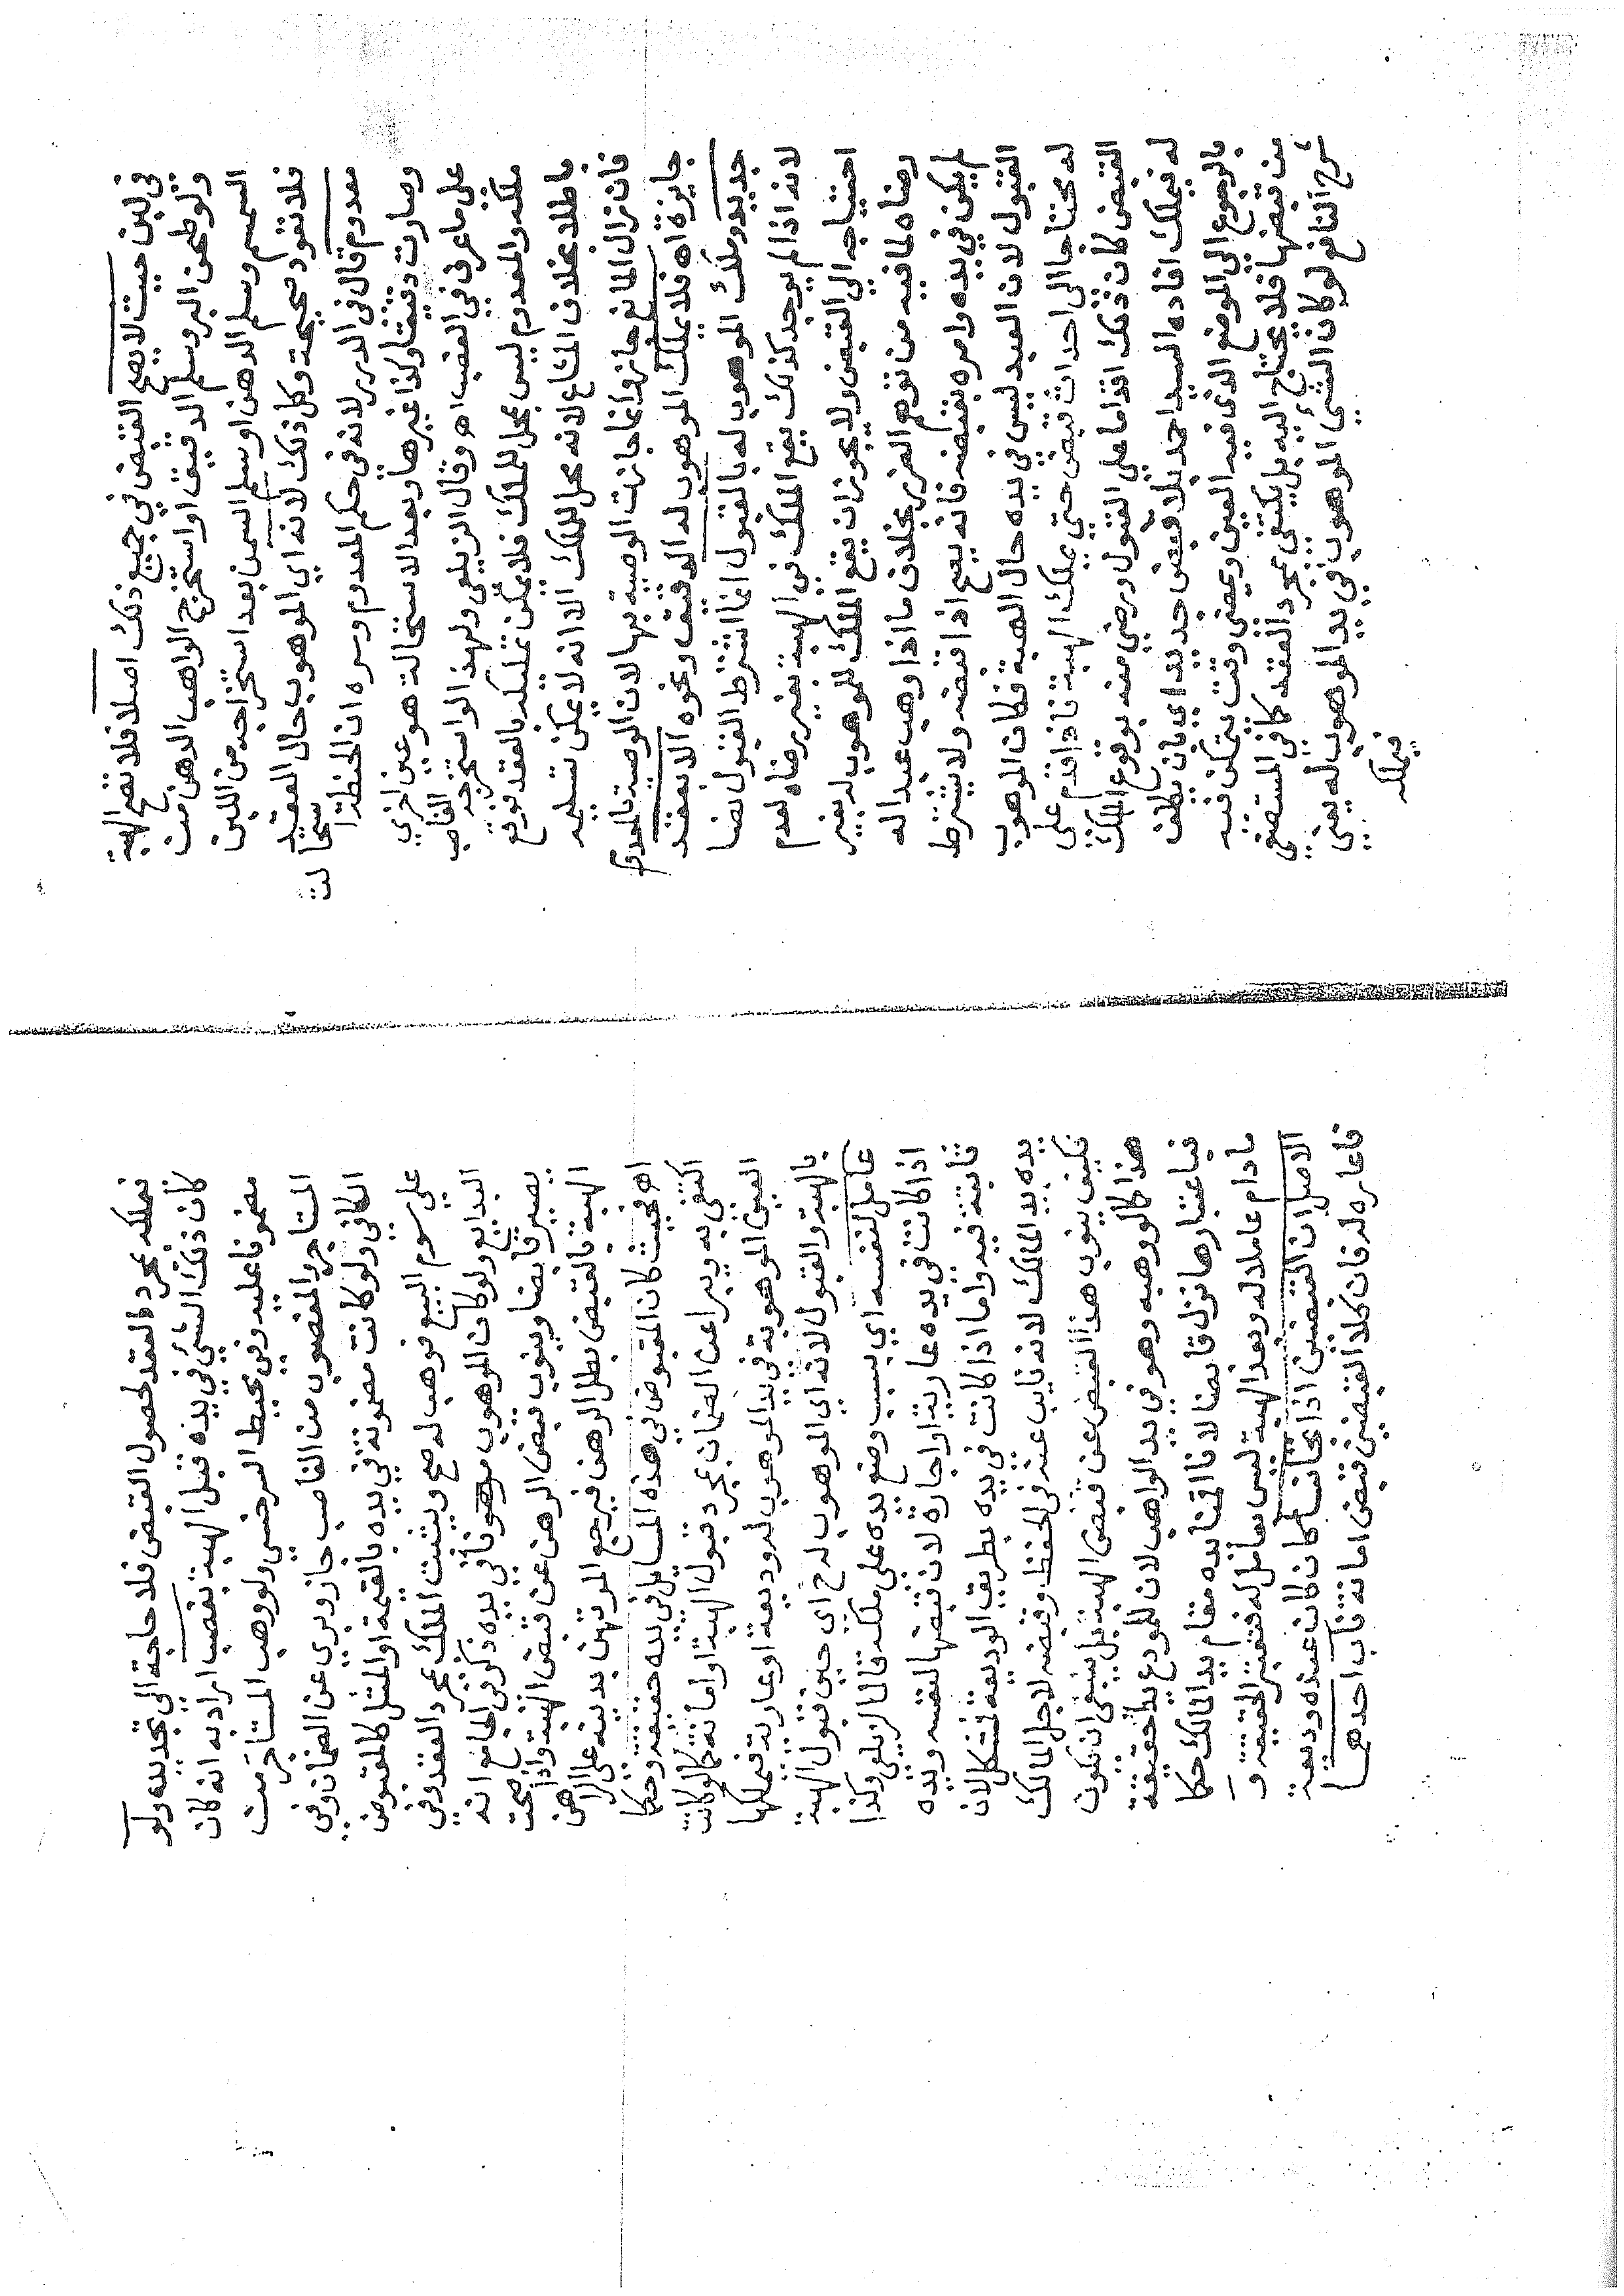 في لبن حيث لا يصح القبض في جميع ذلك اصلا فلا تصح الهبة
ولو طحن البر وسلم الدقيق او استخرج الواهب الدهن من
السمسم وسلم الدهن او سلم السمن بعد استخراجه من اللبن
فلا تعود صحيحة وكل ذلك لانه اي الموهوب حال العقد
معدوم قال في الدرر لانه في حكم المعدوم وسره ان الحنطة استحالت
وصارت دقيقا وكذا غيرها وبعد الاستحالة هو عين اخري
علي ما عرف في الغصب اه وقال الزيلعي ولهذا لو استخرجه الغاصب
ملكه والمعدوم ليس بمحل للملك فلا يمكن تمليكه بالعقد فوقع
باطلا بخلاف المشاع لانه محل للملك الا انه لا يمكن تسليمه
فان زال المانع جاز وانما جازت الوصية بها لان الوصية بالمعدوم
جايزة اه فلا يملك الموهوب له الدقيق ونحوه الا بعقد
جديد وملك الموهوب له بالقبول انما اشترط القبول نصا
لانه اذا لم يوجد كذلك يقع الملك في الهبة بغير رضاه لعدم
احتياجه الي القبض ولا يجوز ان يقع الملك للموهوب له بغير
رضاه لما فيه من توهم الضرر بخلاف ما اذا وهب عبدا له
لم يكن في يده وامره بقبضه فانه يصح اذا قبضه ولا يشترط
القبول لان العبد ليس في يده حال الهبة فكان الموهوب
له محتاجا الي احداث قبض حتي يملك الهبة فاذا اقدم علي
القبض كان ذلك اقداما علي القبول ورضي منه بوقوع الملك
له فيملك افاده السيد احمد بلا قبض جديد اي بان
بالرجوع الي الموضع الذي فيه العين ويمضي وقت يتمكن فيه
من قبضها فلا يحتاج اليه بل يكتفي بمجرد العقد كافي المستصفي
شرح النافع لو كان الشي الموهوب في يد الموهوب له يعني
فيملكه
نملكه بمجرد العقد لحصول القبض فلا حاجة الي تجديده ولو
كان ذلك الشي في يده قبل الهبة بغصب اراد به انه كان
مضمونا عليه وفي محيط السرخسي ولو وهب المستاجر من
المستاجر والمغصوب من الغاصب جاز ويبري عن الضمان وفي
الكافي ولو كانت مضمونة في يده بالقيمة او المثل كالمقبوض
علي سوم البيع فوهب له صح ويثبت الملك بمجرد العقد وفي
البدايع ولو كان الموهوب مرهونا في يده ذكر في الجامع انه
يصير قابضا وينوب قبض الرهن عن قبض الهبة واذا صحت
الهبة بالقبض بطل الرهن فيرجع المرتهن بدينه علي الراهن
اه بحيث كان المقبوض في هذه المسايل في يده حقيقة وحكما
اكتفي به ويبرا عن الضمان بمجرد قبول الهبة او امانة كما لو كانت
العين الموهوبة في يد الموهوب له وديعة او عارية فيملكها
بالهبة والقبول لانه اي الموهوب له ح اي حين قبول الهبة
عامل لنفسه اي بسبب وضع يده علي ملكه قال الزيلعي وكذا
اذا كانت في يده عارية او اجارة لان قبضها لنفسه ويده
ثابتة فيه واما اذا كانت في يده بطريق الوديعة فمشكل لان
يده يد المالك لانه نايب عنه في الحفظ وقبضه لاجل المالك
فكيف ينوب هذا القبض عن قبض الهبة بل ينبغي ان يكون
هذا كالو وهبه وهو في يد الواهب لان للمودع يدا حقيقة
فباعتبارها نزل قابضا لانا اقمنا يده مقام يد المالك حكما
ما دام عاملا له وبعد الهبة ليس بعامل له فتعتبر الحقيقة و
الاصل ان القبضين اذا تجانسا كان كان عنده وديعة
فاعاره له فان كلا القبضين قبض امانة ناب احدهما